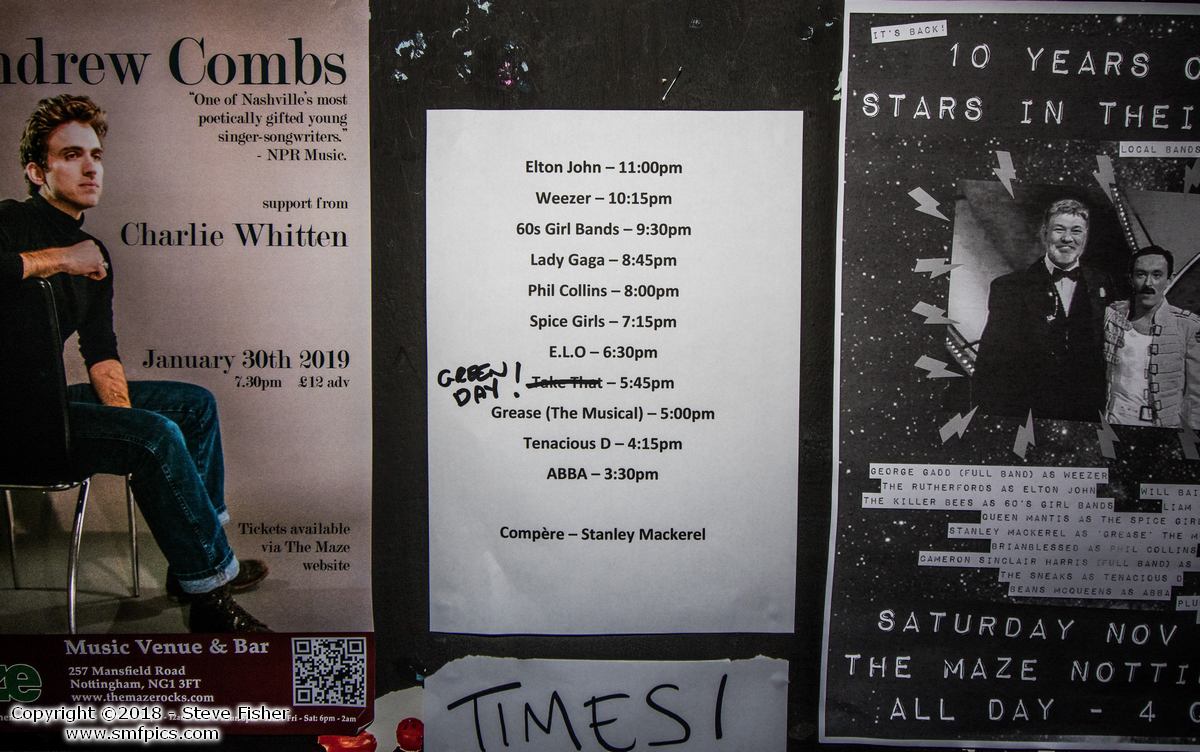 ndrew Combs
“One of Nashville's most
poetically gifted young
singer-songwriters.”
- NPR Music.
support from
Charlie Whitten
January 30th 2019
7.30pm £12 adv
Tickets available
via The Maze
website
Music Venue & Bar
257 Mansfield Road
Nottingham, NG1 3FT
www.themazerocks.com
Fri - Sat: 6pm - 2am
Copyright ©2018 - Steve Fisher
www.smfpics.com
Elton John – 11:00pm
Weezer – 10:15pm
60s Girl Bands – 9:30pm
Lady Gaga – 8:45pm
Phil Collins – 8:00pm
Spice Girls – 7:15pm
E.L.O – 6:30pm
GREEN DAY! Take That – 5:45pm
Grease (The Musical) – 5:00pm
Tenacious D – 4:15pm
ABBA – 3:30pm
Compère – Stanley Mackerel
TIMES!
IT'S BACK!
10 YEARS O
STARS IN THEI
LOCAL BANDS
GEORGE GADD (FULL BAND) AS WEEZER
THE RUTHERFORDS AS ELTON JOHN
WILL BAI
THE KILLER BEES AS 60'S GIRL BANDS
LIAM
QUEEN MANTIS AS THE SPICE GIR
STANLEY MACKEREL AS 'GREASE' THE M
BRIANBLESSED AS PHIL COLLINS
CAMERON SINCLAIR HARRIS (FULL BAND) AS
THE SNEAKS AS TENACIOUS D
BEANS MCQUEENS AS ABBA
PLU
SATURDAY NOV
THE MAZE NOTTI
ALL DAY - 4